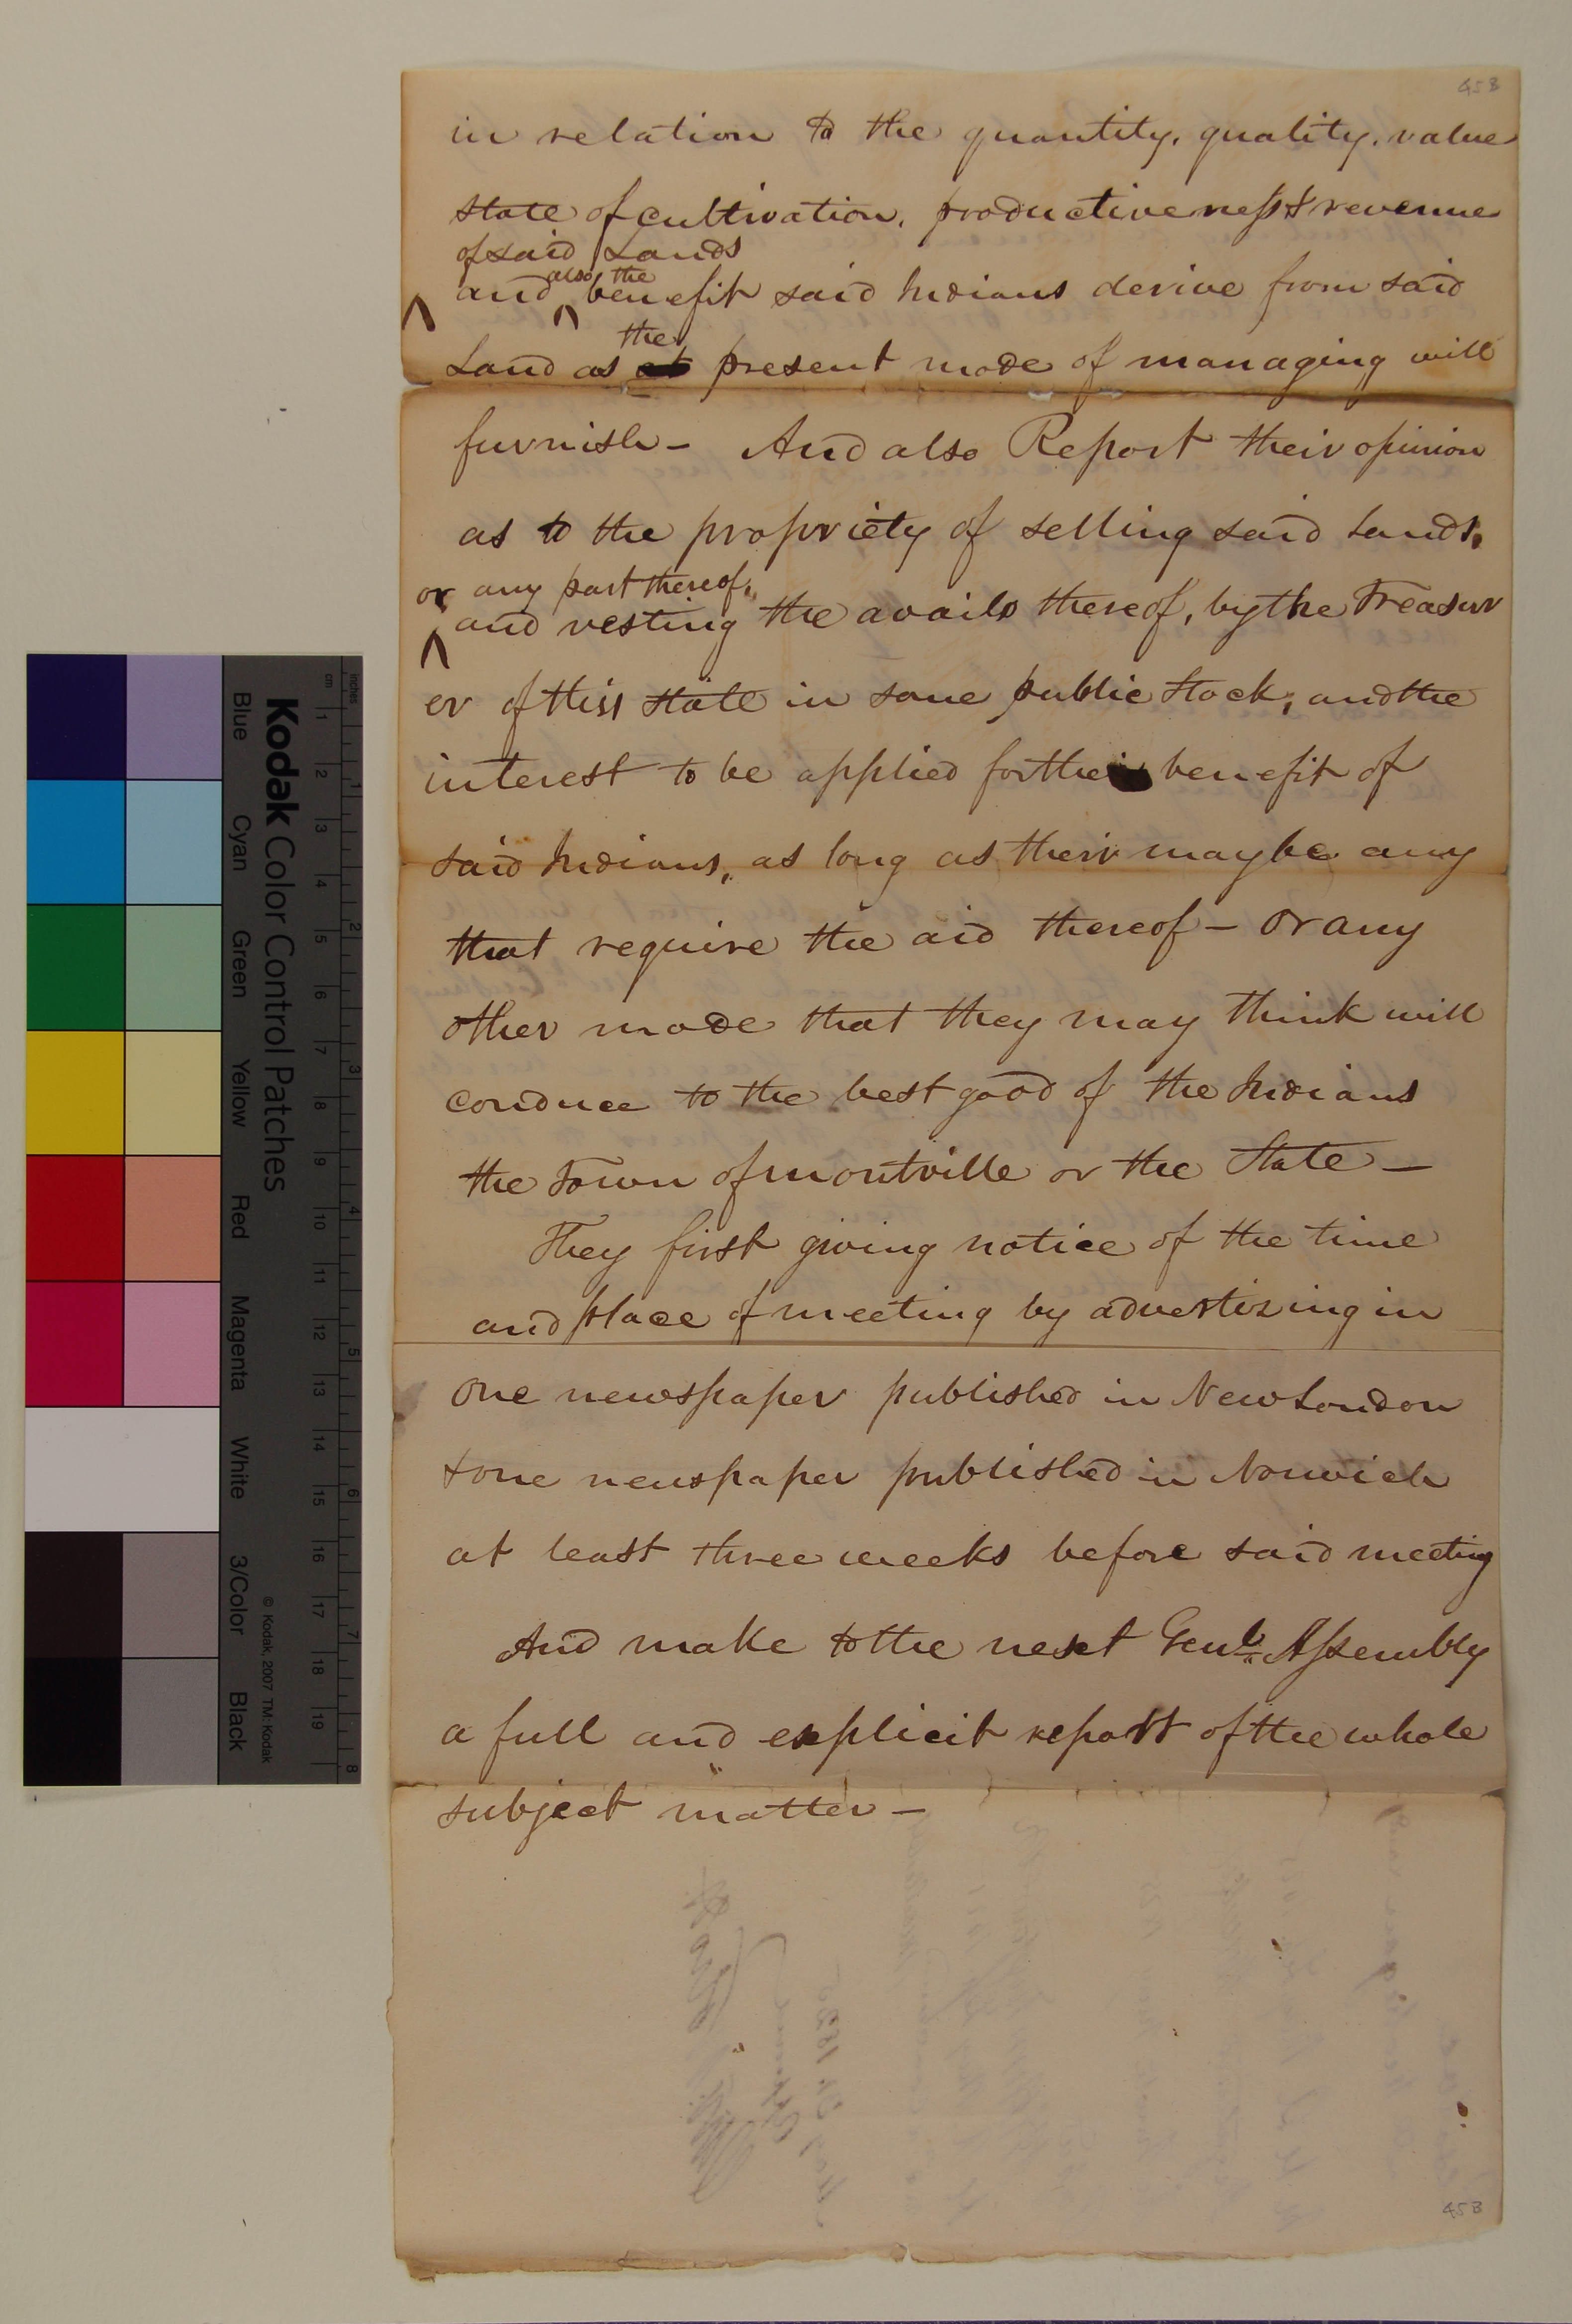 45B
in relation to the quantity, quality, value
state of cultivation, productiveness & revenue
of said Lands
also the
and benefit said Indians derive from said
the
Land as present mode of managing will
furnish – And also Report their opinion
as to the propriety of selling said Lands,
or any part thereof,
and vesting the avails thereof, by the Treasur
er of this State in some public Stock, and the
interest to be applied for the benefit of
said Indians, as long as their may be any
that require the aid thereof – or any
other mode that they may think will
conduce to the best good of the Indians
the Town of montville or the State –
They first giving notice of the time
and place of meeting by advertizing in
one newspaper published in New London
& one newspaper published in Norwich
at least three weeks before said meeting
And make to the next Genl. Assembly
a full and explicit report of the whole
subject matter –
45B
Kodak Color Control Patches
© Kodak, 2007 TM: Kodak
Blue Cyan Green Yellow Red Magenta White 3/Color Black
inches 1 2 3 4 5 6 7 8
cm 1 2 3 4 5 6 7 8 9 10 11 12 13 14 15 16 17 18 19